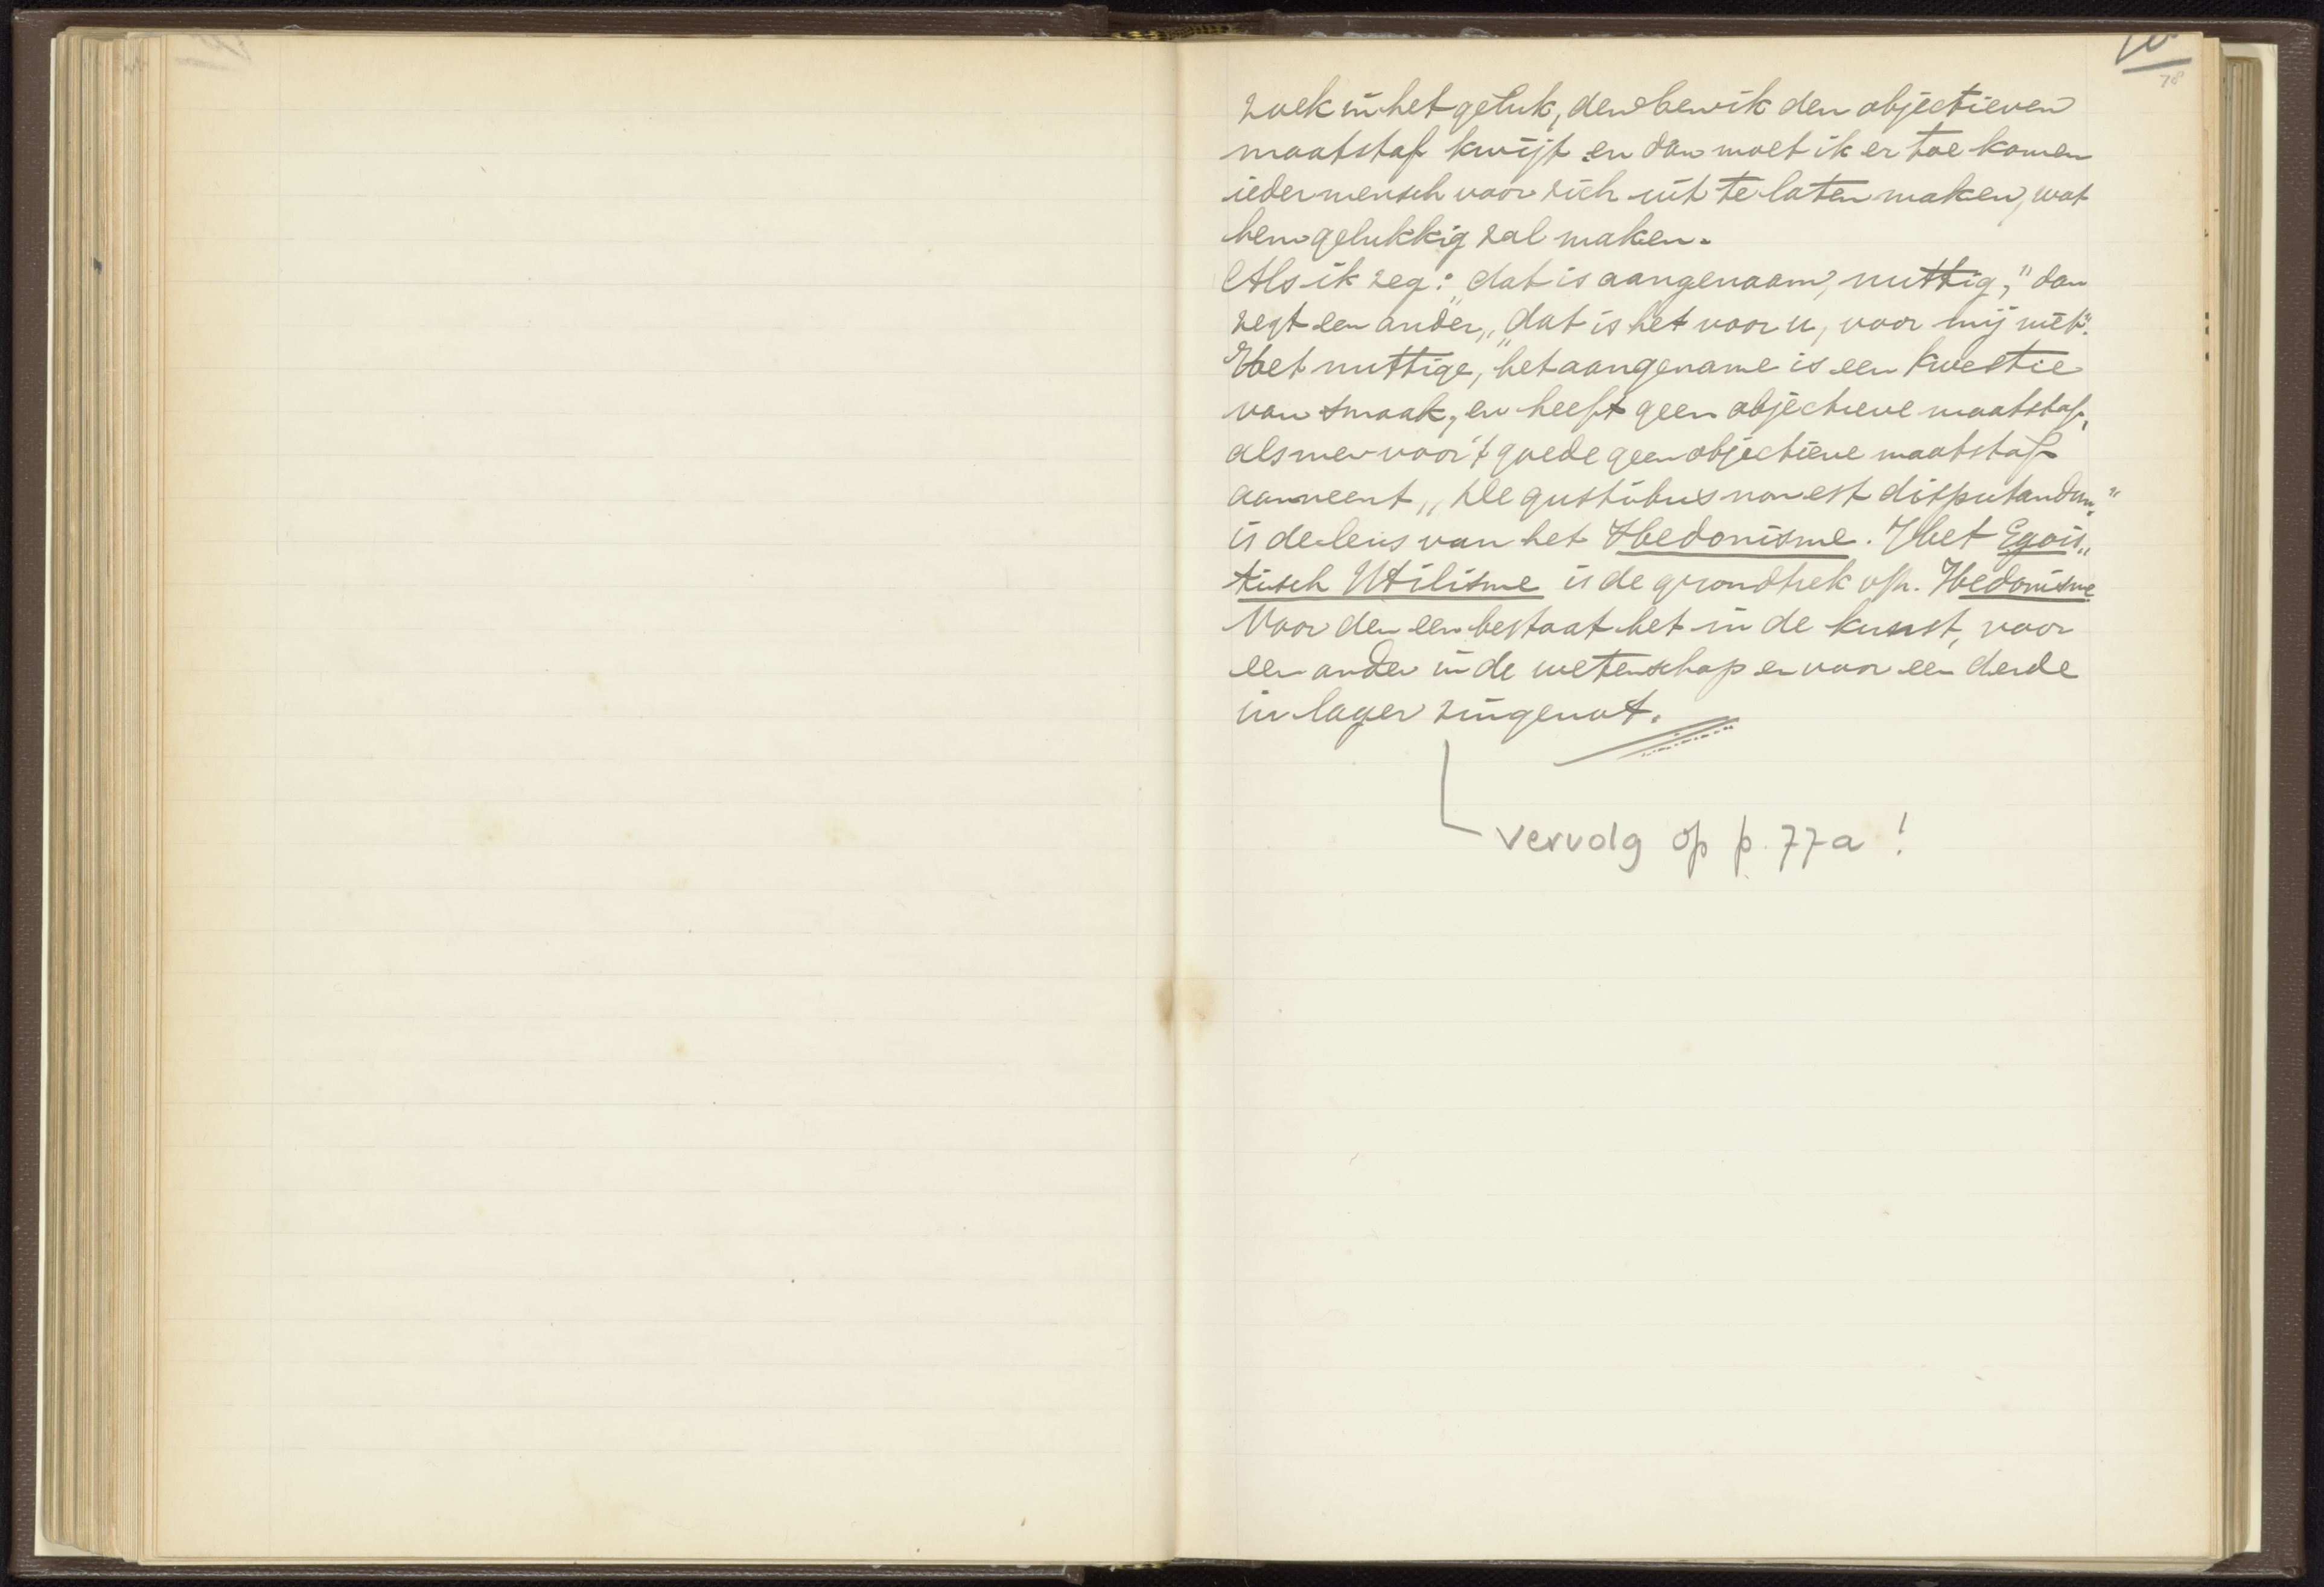 78
zoek in het geluk, dan ben ik den objectieven
maatstaf kwijt en dan moet ik er toe komen
ieder mensch voor zich uit te laten maken, wat
hem gelukkig zal maken.
Als ik zeg: „dat is aangenaam, nuttig," dan
zegt een ander, „dat is het voor u, voor mij niet".
Het nuttige, het aangename is een kwestie
van smaak, en heeft geen objectieve maatstaf,
als men voor 't goede geen objectieve maatstaf
aanneemt „De gustibus non est disputandum"
is de leus van het Hedonisme. Het Egois„
tisch Utilisme is de grondtrek v/h. Hedonisme
Voor den een bestaat het in de kunst, voor
een ander in de wetenschap en voor een derde
in lager zingenot.
vervolg op p. 77a !